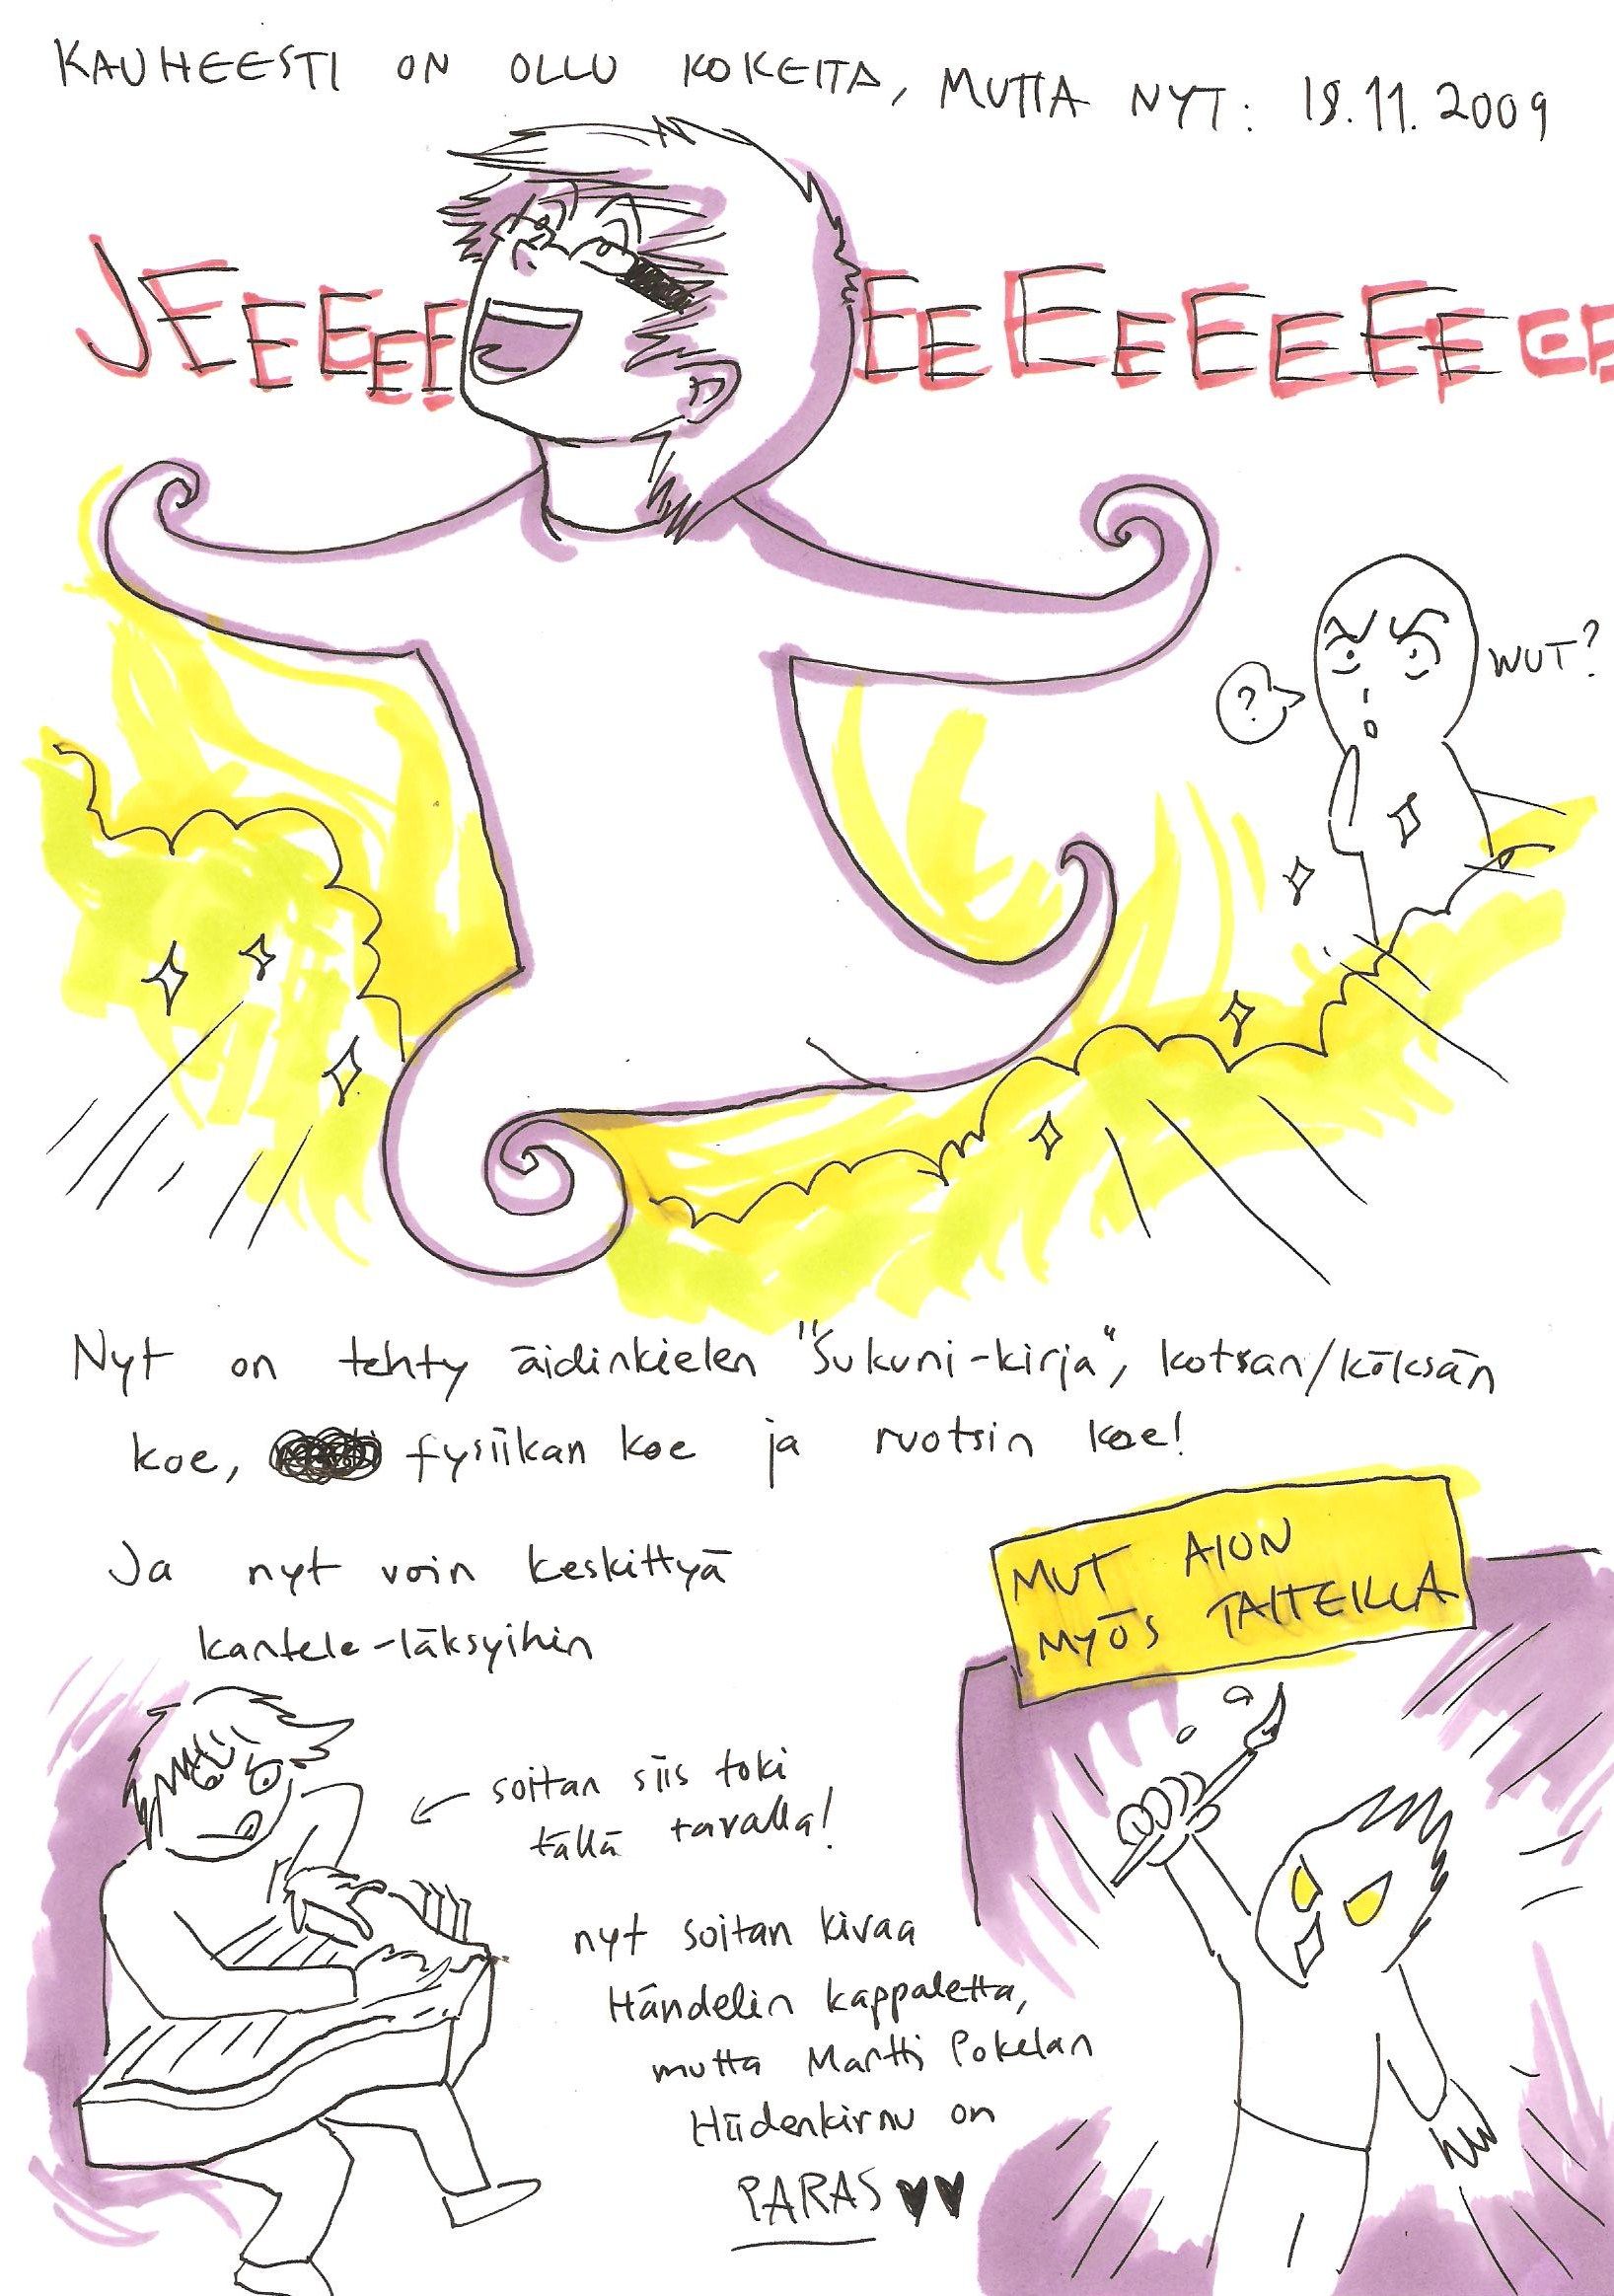 KAUHEESTI ON OLLU KOKEITA, MUTTA NYT: 18.11.2009
JEEEEEE EEEEEEEEEEE
?
WUT?
Nyt on tehty äidinkielen "Sukuni-kirja", kotsan/köksän
koe, fysiikan koe ja ruotsin koe!
Ja nyt voin keskittyä
kantele-läksyihin
MUT AION
MYÖS TAITEILLA
← soitan siis toki
tällä tavalla!
nyt soitan kivaa
Händelin kappaletta,
mutta Martti Pokelan
Hiidenkirnu on
PARAS ♥♥